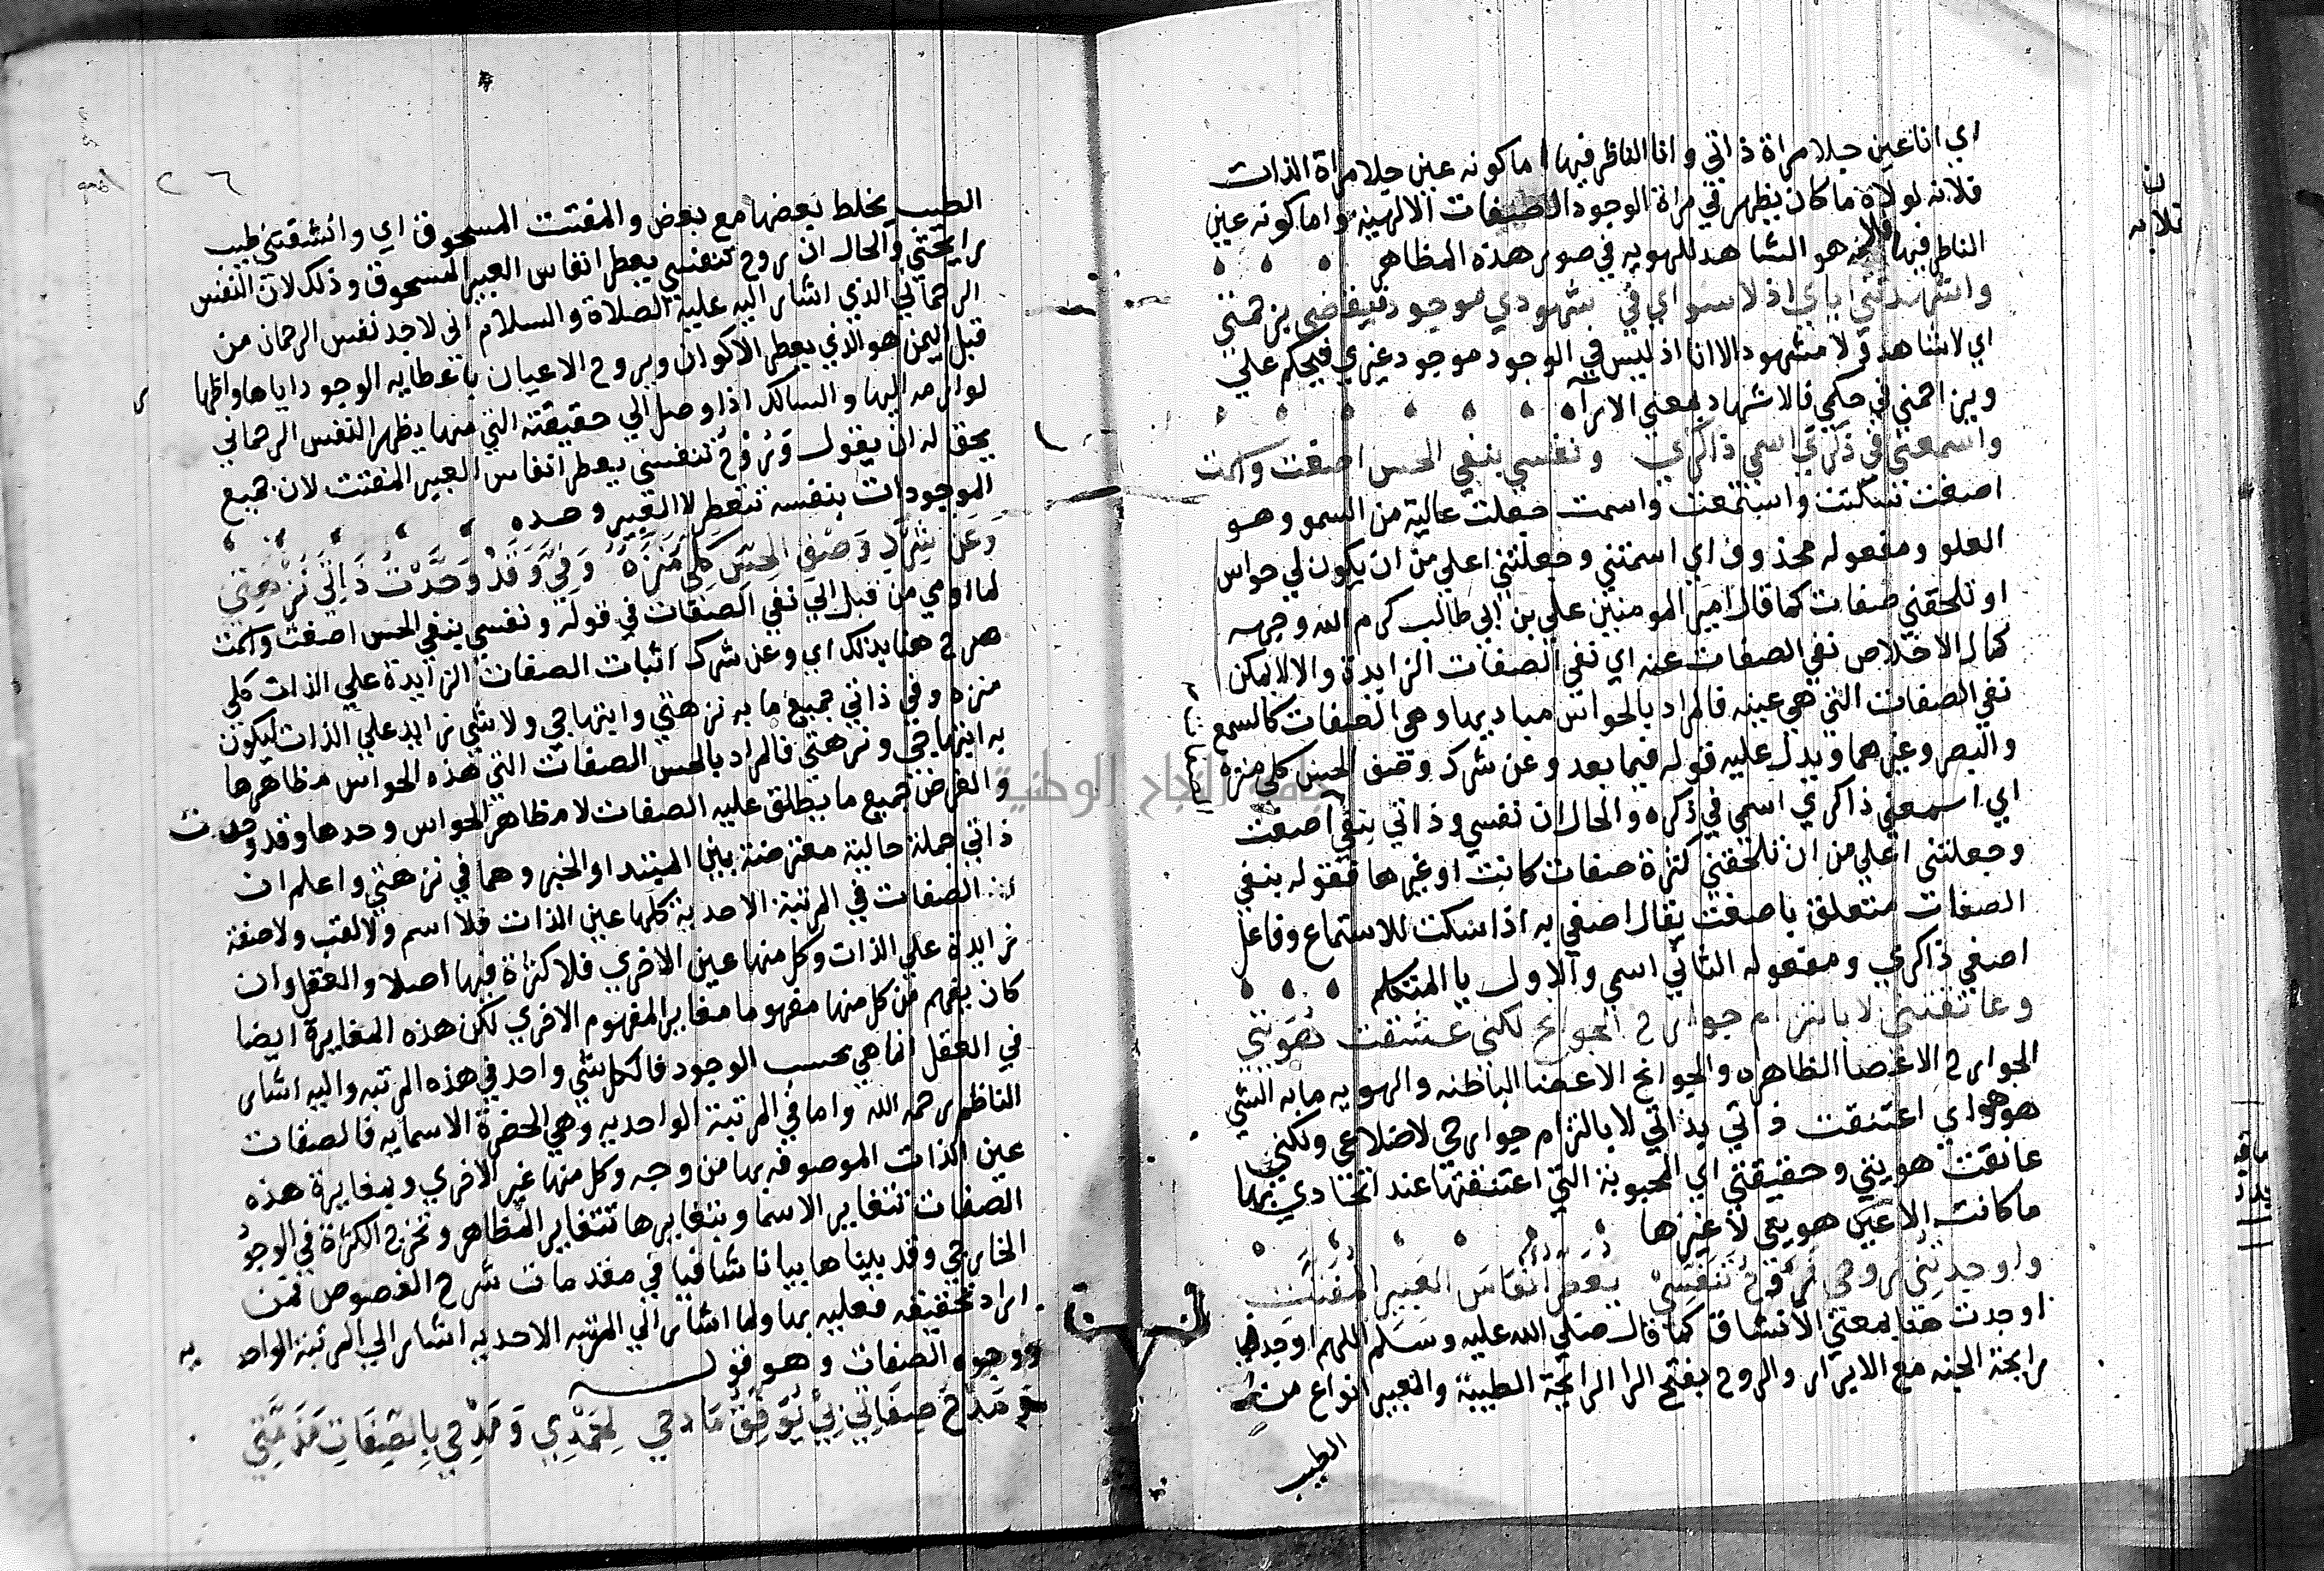 اي انا عين جلا مراة ذاتي وانا الناظر فيها اما كونه عين جلا مراة الذات
فلانه لولاه ما كان يظهر في مراة الوجود الصفات الالهية واما كونه عين
الناظر فيها فلانه هو الشاهد للهويه في صور هذه المظاهر
واشهدتني اياي اذ لا سواي في شهودي موجود فيقضي بزحمتي
اي لا شاهد ولا مشهود الا انا اذ ليس في الوجود موجود غيري فيحكم علي
ويزاحمني في حكمي فالاشهاد بمعني الاراء
واسمعني في ذكري اسمي ذاكري ونفسي بنفي الحس اصغت واسمت
اصغت سكتت واستمعت واسمت جعلت عالية من السمو وهو
العلو ومفعوله محذوف اي اسمتني وجعلتني اعلي من ان يكون لي حواس
او تلحقني صفات كما قال امير المومنين علي بن ابي طالب كرم الله وجهه
كمال الاخلاص نفي الصفات عنه اي نفي الصفات الزايدة والا لا يمكن
نفي الصفات التي هي عينه فالمراد بالحواس مباديها وهي الصفات كالسمع
والبصر وغيرهما ويدل عليه قوله فيما بعد وعن شرك وصف الحس كلي منزه
اي اسمعني ذاكري اسمي في ذكره والحال ان نفسي وذاتي بنفي اصغت
وجعلتني اعلي من ان تلحقني كثرة صفات كانت او غيرها فقوله بنفي
الصفات متعلق باصغت يقال اصغي به اذا سكت للاستماع وفاعل
اصغي ذاكري ومفعوله الثاني اسمي والاول يا المتكلم
وعانقتني لا بالتزام جوارح الجوانح لكني عشقت هويتي
الجوارح الاعضا الظاهره والجوانح الاعضا الباطنه والهويه ما به الشي
هو هو اي اعتنقت ذاتي بذاتي لا بالتزام جوارحي لاضلاعي ولكني
عانقت هويتي وحقيقتي اي المحبوبة التي اعتنقتها عند اتحادي بها
ما كانت الا عين هويتي لا غيرها
واوجدتني روحي وروح تنفسي يعطر انفاس العبير المفتت
اوجدت هنا بمعني الانشاق كما قال صلي الله عليه وسلم اللهم اوجدنا
رايحة الجنه مع الابرار والروح بفتح الرا الرايحة الطيبة والعبير انواع من
الطيب
الطيب يخلط بعضها مع بعض والمفتت المسحوق اي وانشقتني طيب
رايحتي والحال ان روح تنفسي يعطر انفاس العبير المسحوق وذلك لان النفس
الرحماني الذي اشار اليه عليه الصلاة والسلام اني لاجد نفس الرحمان من
قبل اليمن هو الذي يعطر الاكوان ويروح الاعيان باعطايه الوجود اياها واظها
لوازمه اليها والسالك اذا وصل الي حقيقته التي منها يظهر النفس الرحماني
يحق له ان يقول وروح تنفسي يعطر انفاس العبير المفتت لان جميع
الموجودات بنفسه تتعطر لا العبير وحده
وعن شرك وصف الحس كلي منزه وفي وقد وحدت ذاتي نزهتي
لما اومي من قبل الي نفي الصفات في قوله ونفسي بنفي الحس اصغت واسمت
صرح هنا بذلك اي وعن شرك اثبات الصفات الزايدة علي الذات كلي
منزه وفي ذاتي جميع ما به نزهتي وابتهاجي ولا شي زايد علي الذات ليكون
به ابتهاجي ونزهتي فالمراد بالحس الصفات التي هذه الحواس مظاهرها
والغرض جميع ما يطلق عليه الصفات لا مظاهر الحواس وحدها وقد وحدت
ذاتي جملة حالية معترضة بين المبتدا والخبر وهما في نزهتي واعلم ان
الصفات في المرتبة الاحدية كلها عين الذات فلا اسم ولا لقب ولا صفة
زايدة علي الذات وكل منها عين الاخري فلا كثرة فيها اصلا والعقل وان
كان يفهم من كل منها مفهوما مغاير المفهوم الاخري لكن هذه المغايرة ايضا
في العقل انما هي بحسب الوجود فالكل شي واحد في هذه المرتبه واليه اشار
الناظم رحمه الله واما في المرتبة الواحديه وهي الحضرة الاسمايه فالصفات
عين الذات الموصوفه بها من وجه وكل منها غير الاخري وبمغايرة هذه
الصفات تتغاير الاسما وبتغايرها تتغاير المظاهر وتخرج الكثرة في الوجود
الخارجي وقد بيناها بيانا شافيا في مقدمات شرح الفصوص فمن
اراد تحقيقه فعليه بها ولما اشار الي المرتبه الاحديه اشار الي المرتبة الواحديه
ووجوه الصفات وهو قوله
ومدح صفاتي بي يوفق مادحي لحمدي ومدحي بالصفات مذمتي